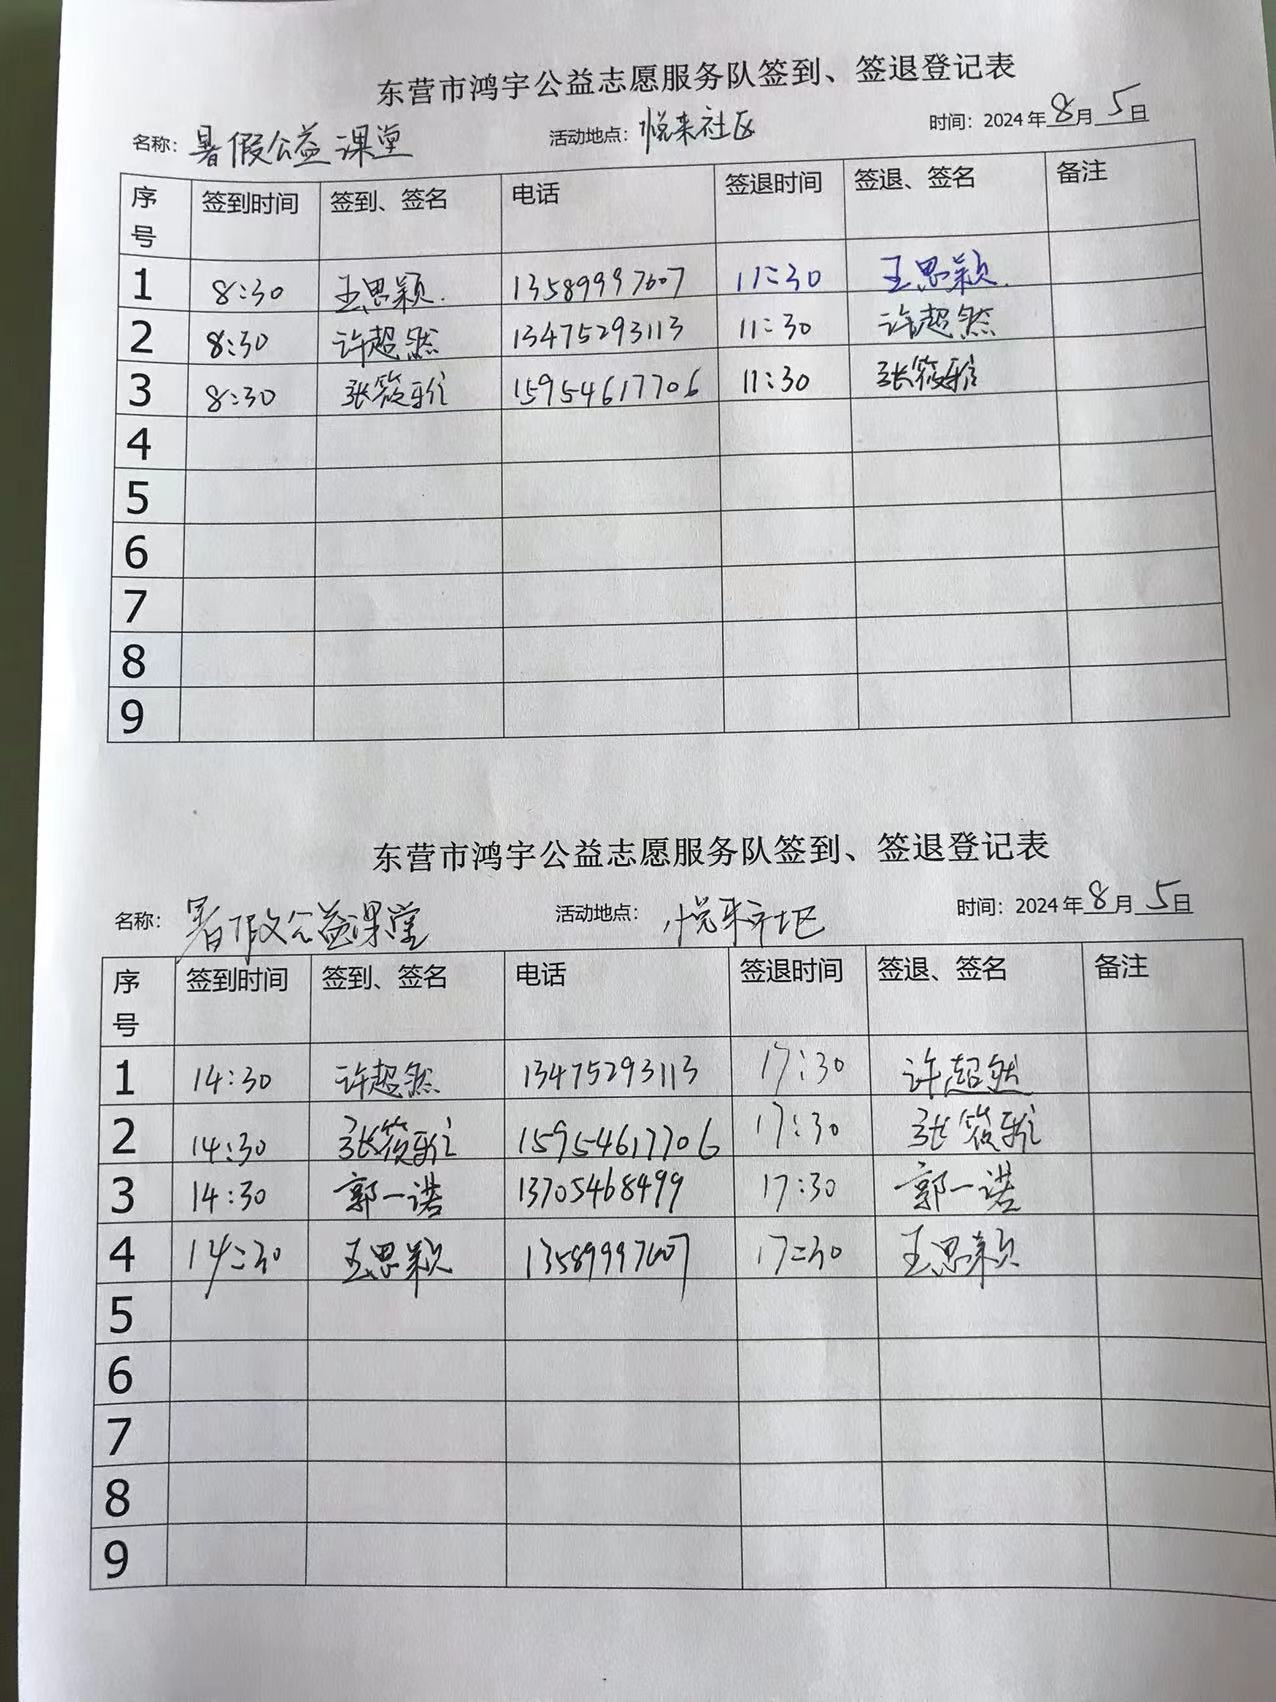 东营市鸿宇公益志愿服务队签到、签退登记表
名称：暑假公益课堂 活动地点：悦来社区 时间：2024年8月5日
序号 签到时间 签到、签名 电话 签退时间 签退、签名 备注
1 8:30 王思颖 13589997607 11:30 王思颖
2 8:30 许超然 13475293113 11:30 许超然
3 8:30 张筱雅 15954617706 11:30 张筱雅
4
5
6
7
8
9
东营市鸿宇公益志愿服务队签到、签退登记表
名称：暑假公益课堂 活动地点：悦来社区 时间：2024年8月5日
序号 签到时间 签到、签名 电话 签退时间 签退、签名 备注
1 14:30 许超然 13475293113 17:30 许超然
2 14:30 张筱雅 15954617706 17:30 张筱雅
3 14:30 郭一诺 13705468499 17:30 郭一诺
4 14:30 王思颖 13589997607 17:30 王思颖
5
6
7
8
9